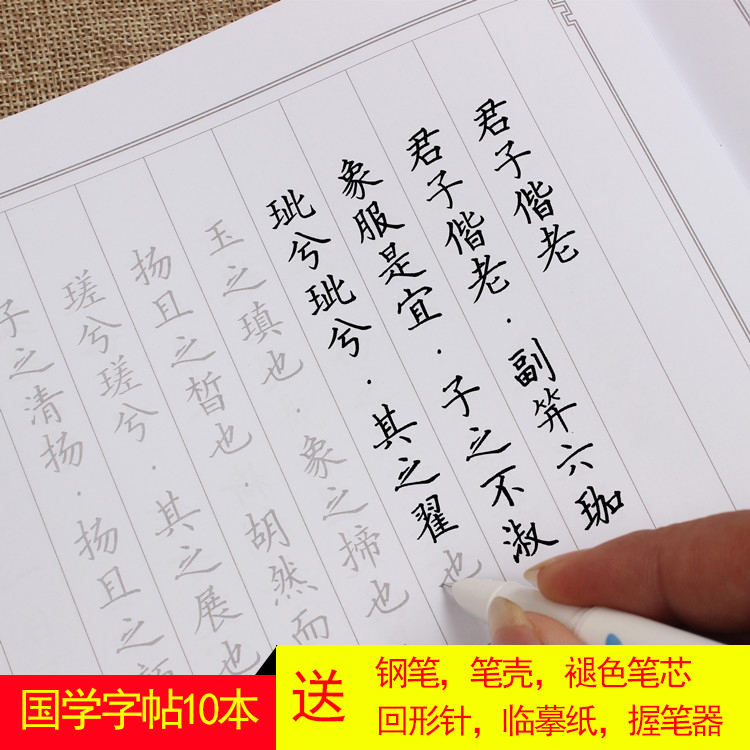 君子偕老
君子偕老·副笄六珈
象服是宜·子之不淑
玼兮玼兮·其之翟也
玉之瑱也·象之揥也
扬且之皙也·胡然而
瑳兮瑳兮·其之展也
子之清扬·扬且之
国学字帖10本
送
钢笔，笔壳，褪色笔芯
回形针，临摹纸，握笔器